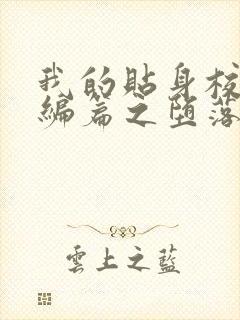 我的貼身校
編篇之墮落
雲上之藍